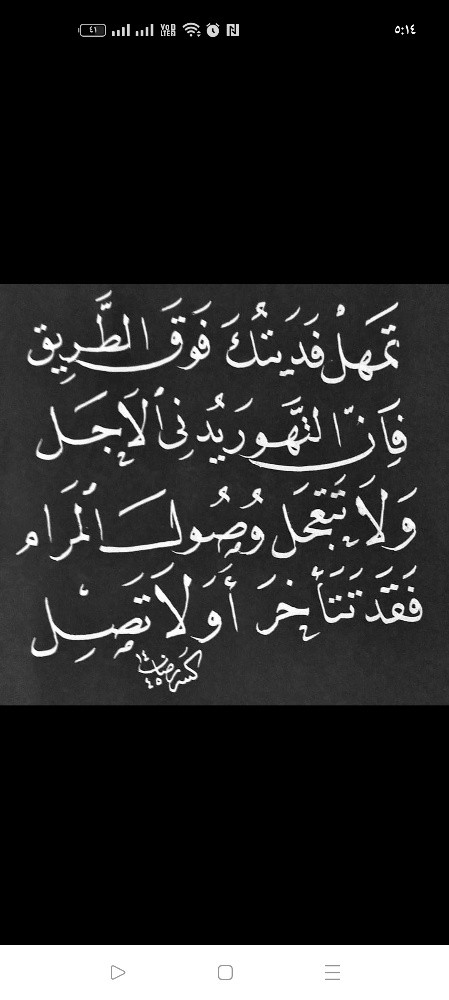 ٤١
٥:١٤
تَمَهَّلْ فَدَيتُكَ فَوقَ الطَّريقِ
فَإنَّ التَّهورَ يُدني الأجَل
وَلا تَتعجَل وُصُولَ المَرام
فَقَد تَتَأخرَ أَو لا تَصِل